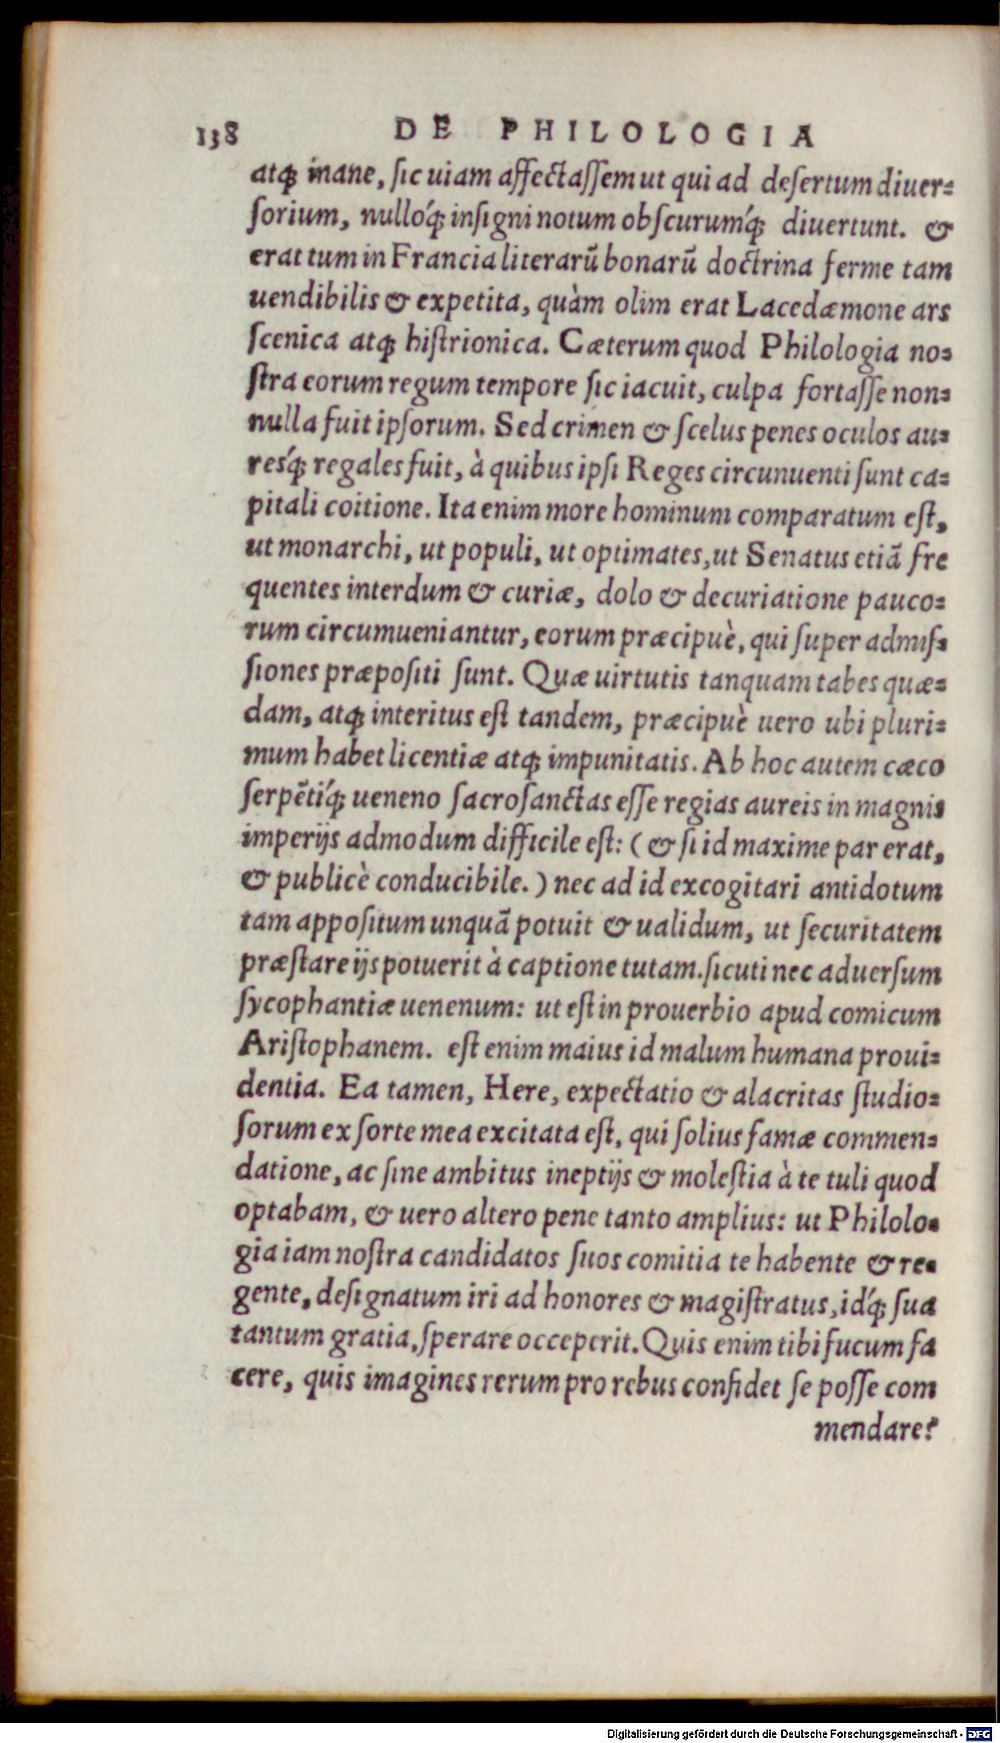 138 DE PHILOLOGIA
atq́; inane, ſic uiam affectaſſem ut qui ad deſertum diuer-
ſorium, nulloq́; inſigni notum obſcurumq́; diuertunt. &
erat tum in Francia literarũ bonarũ doctrina ferme tam
uendibilis & expetita, quàm olim erat Lacedæmone ars
ſcenica atq; hiſtrionica. Cæterum quod Philologia no-
ſtra eorum regum tempore ſic iacuit, culpa fortaſſe non-
nulla fuit ipſorum. Sed crimen & ſcelus penes oculos au-
resq́; regales fuit, à quibus ipſi Reges circunuenti ſunt ca-
pitali coitione. Ita enim more hominum comparatum eſt,
ut monarchi, ut populi, ut optimates, ut Senatus etiã fre
quentes interdum & curiæ, dolo & decuriatione pauco-
rum circumueniantur, eorum præcipuè, qui ſuper admiſ-
ſiones præpoſiti ſunt. Quæ uirtutis tanquam tabes quæ-
dam, atq; interitus eſt tandem, præcipuè uero ubi pluri-
mum habet licentiæ atq; impunitatis. Ab hoc autem cæco
ſerpẽtiq́; ueneno ſacroſanctas eſſe regias aureis in magnis
imperijs admodum difficile eſt: (& ſi id maxime par erat,
& publicè conducibile.) nec ad id excogitari antidotum
tam appoſitum unquã potuit & ualidum, ut ſecuritatem
præſtare ijs potuerit à captione tutam. ſicuti nec aduerſum
ſycophantiæ uenenum: ut eſt in prouerbio apud comicum
Ariſtophanem. eſt enim maius id malum humana proui-
dentia. Ea tamen, Here, expectatio & alacritas ſtudio-
ſorum ex ſorte mea excitata eſt, qui ſolius famæ commen-
datione, ac ſine ambitus ineptijs & moleſtia à te tuli quod
optabam, & uero altero pene tanto amplius: ut Philolo-
gia iam noſtra candidatos ſuos comitia te habente & re-
gente, deſignatum iri ad honores & magiſtratus, idq́; ſua
tantum gratia, ſperare occeperit. Quis enim tibi fucum fa
cere, quis imagines rerum pro rebus confidet ſe poſſe com
mendare?
Digitalisierung gefördert durch die Deutsche Forschungsgemeinschaft - DFG